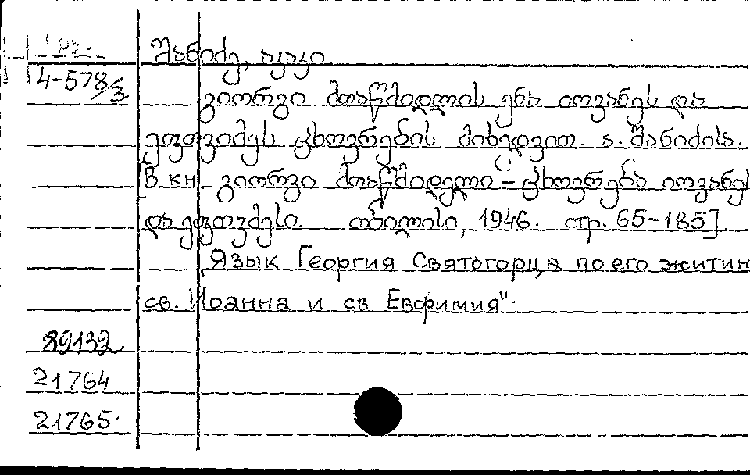 შანიძე, აკაკი
4-578/3
გიორგი მთაწმიდლის ენა იოვანეს და
ეფთვიმეს ცხოვრების მიხედვით. ა. შანიძისა.
В кн. გიორგი მთაწმიდელი - ცხოვრება იოვანეს
და ეფთუმესი თბილისი, 1946. стр. 65-185]
„Язык Георгия Святогорца по его житию
св. Иоанна и св Евфимия".
89132
21764
21765.